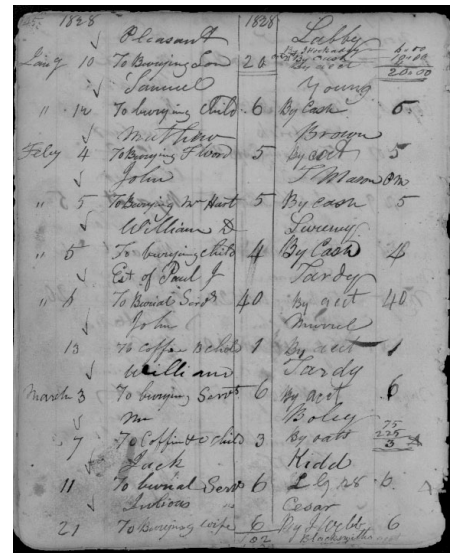 1828 1828
Pleasant Labby
Jany 10 To Burying Son 20 By acct 20.00
Samuel Young
" 12 To burying Child 6 By Cash 5
Mathew Brown
Feby 4 To Burying 5 By act 5
John T Mason
" 5 To Burying Mr Hart 5 By cash 5
William D
" 5 To burying child 4 By Cash 4
Est of Paul J Tardy
" 6 To Burial Servt 40 By act 40
John Murrel
13 To Coffin Child 1 By act 1
William Tardy
March 3 To burying Servt 6 By act 6
Mr Boley
7 To Coffin child 3 By oats 3
Jack Kidd
11 To burial Servt 6 6
Julious Cesar
21 To Burying wife 6 By 6
102 Blacksmith